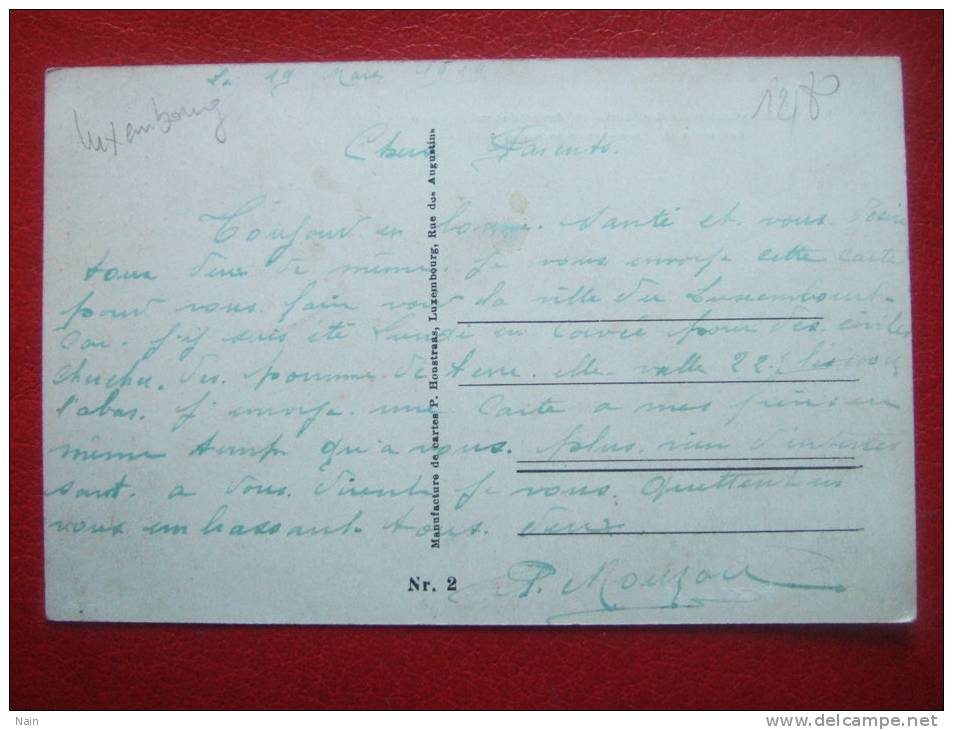 Le 19 Mars 1919
Luxembourg
Chers Parents.
Toujour en bonne santé et vous désire
tous deux de même. Je vous envoye cette carte
pour vous fair voir la ville du Luxembourt.
Car j'y suis été Lundi en Corvée pour des civiles
chuchu. des pomme de terre. elle valle 22
l'abas. J'envoye une carte a mes en
même temp qu'a vous. plus rien d'intéres
sant. a vous dire Je vous quitte en
vous embassant tous deux.
P.
Manufacture de cartes P. Houstraas, Luxembourg, Rue des Augustins
Nr. 2
Nain
www.delcampe.net